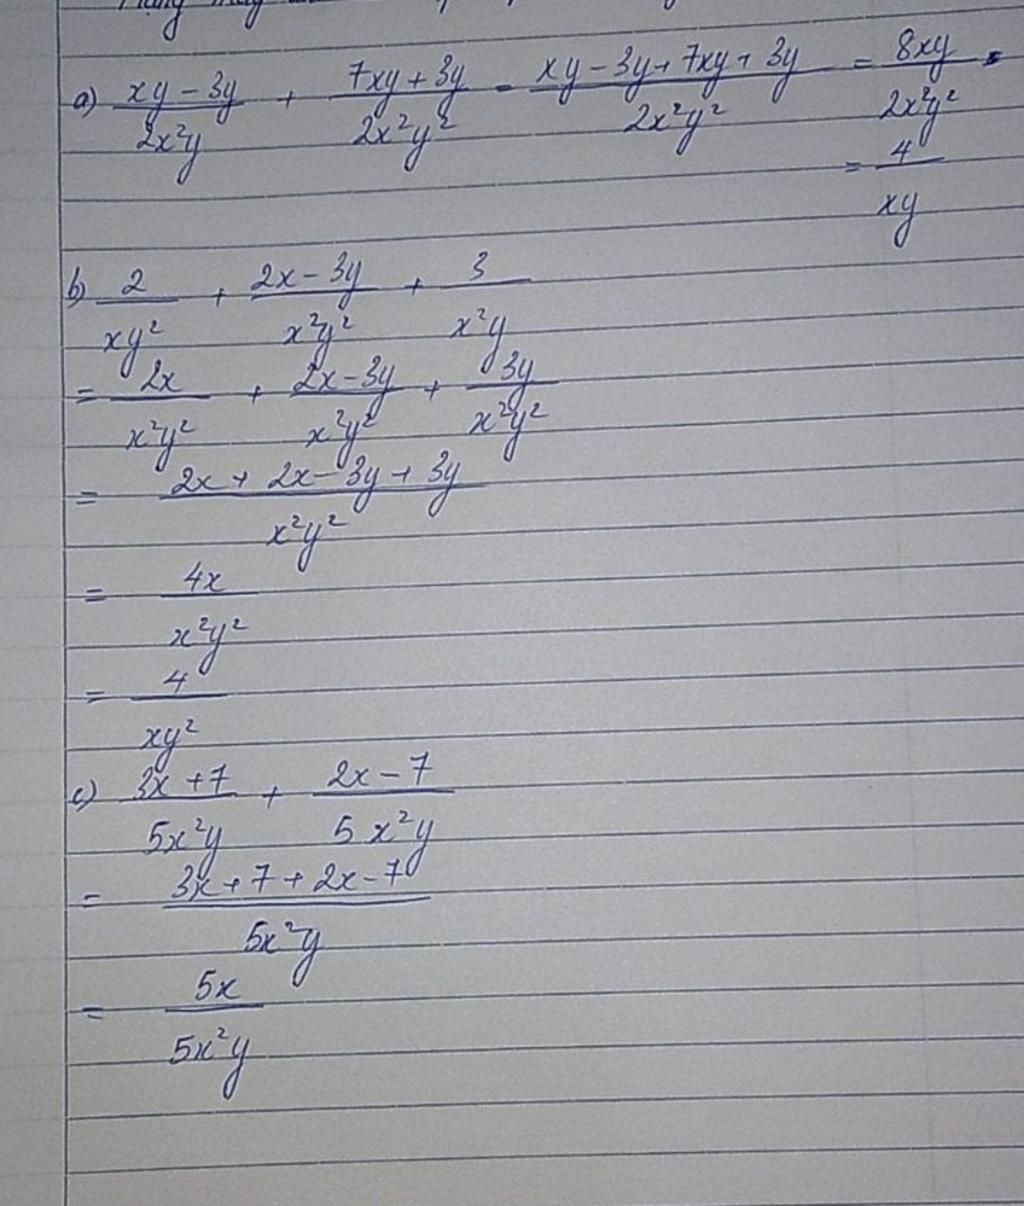 a) xy - 3y / 2x²y + 7xy + 3y / 2x²y² = xy - 3y + 7xy + 3y / 2x²y² = 8xy / 2x²y² =
= 4 / xy
b) 2 / xy² + 2x - 3y / x²y² + 3 / x²y
= 2x / x²y² + 2x - 3y / x²y² + 3y / x²y²
= 2x + 2x - 3y + 3y / x²y²
= 4x / x²y²
= 4 / xy²
c) 3x + 7 / 5x²y + 2x - 7 / 5x²y
= 3x + 7 + 2x - 7 / 5x²y
= 5x / 5x²y